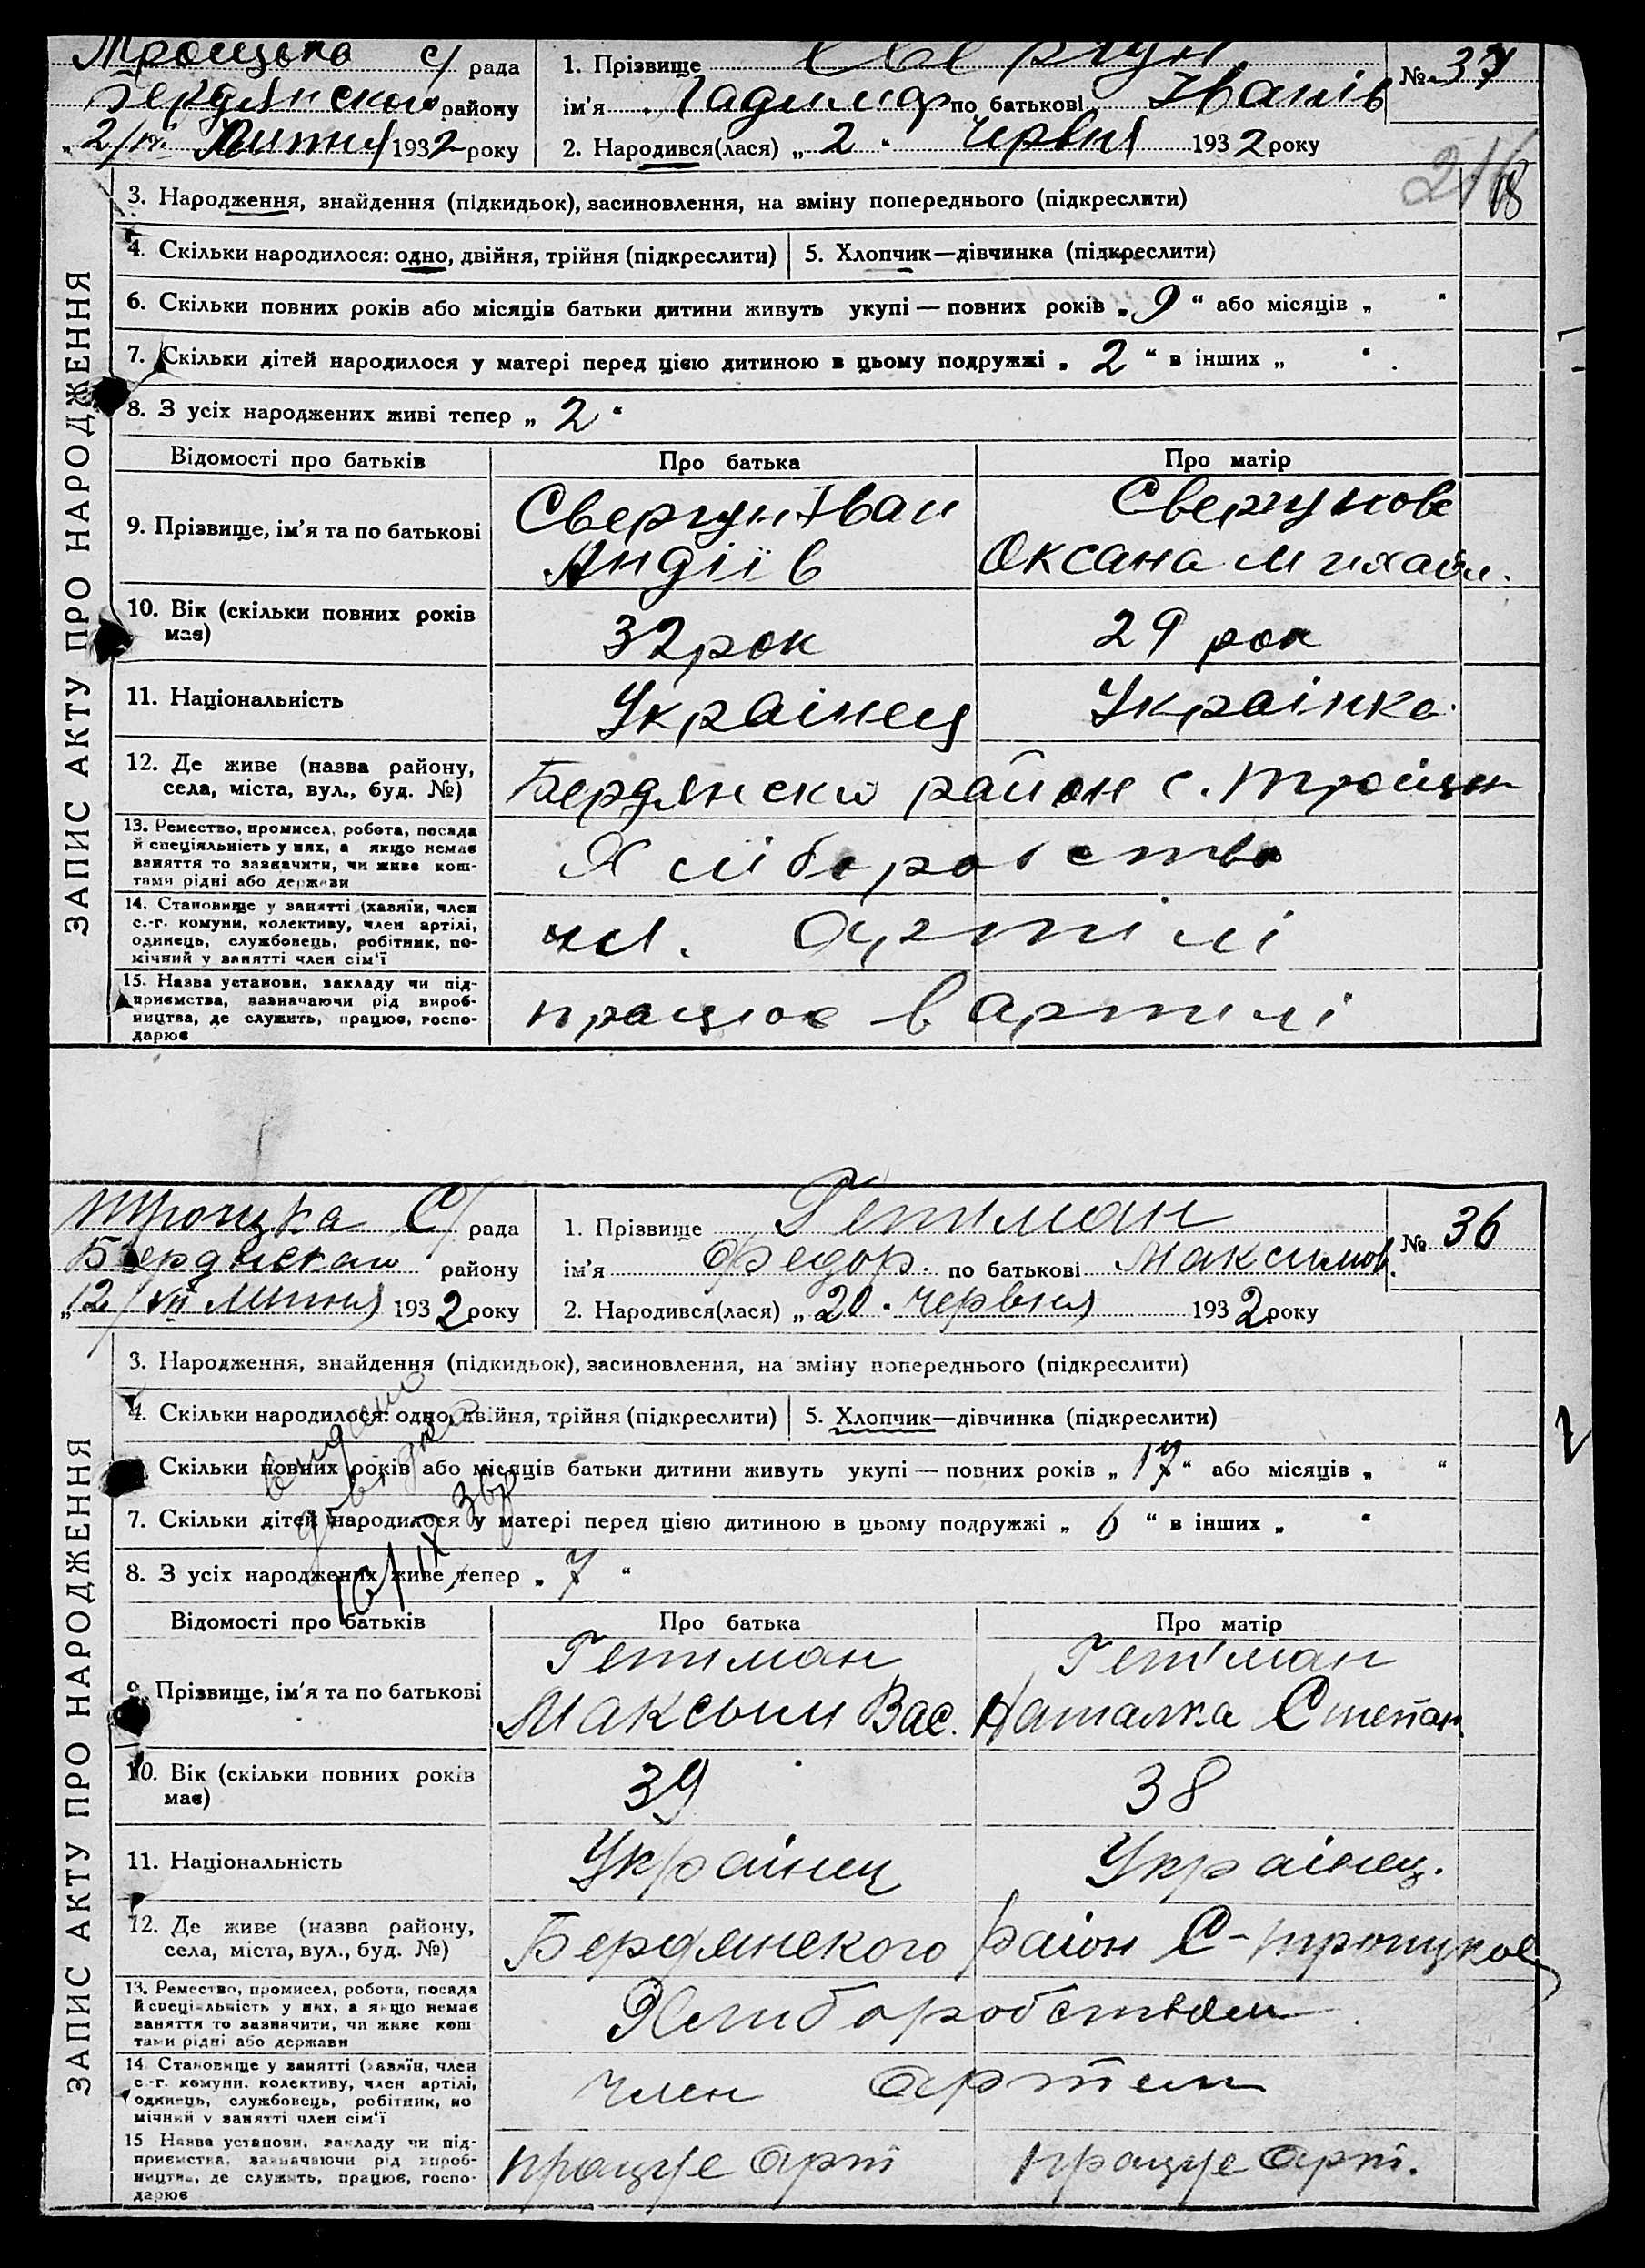 Троицька с/ рада
Бердянского району
„2/VII Литня 1932 року
1. Прізвище Свергун
ім’я по батькові Іванів
2. Народився(лася) „ 2 “ червня 1932 року
№ 37
18
3. Народження, знайдення (підкидьок), засиновлення, на зміну попереднього (підкреслити)
4. Скільки народилося: одно, двійня, трійня (підкреслити) 5. Хлопчик—дівчинка (підкреслити)
6. Скільки повних років або місяців батьки дитини живуть укупі — повних років „ 9 “ або місяців „ “
7. Скільки дітей народилося у матері перед цією дитиною в цьому подружжі „ 2 “ в інших „ “
8. З усіх народжених живі тепер „ 2 “
ЗАПИС АКТУ ПРО НАРОДЖЕННЯ
Відомості про батьків Про батька Про матір
9. Прізвище, ім’я та по батькові
Свергун Іван
Андіїв
Свергунова
Оксана Михайл.
10. Вік (скільки повних років
має)
32 рок 29 рок
11. Національність Українец Українка
12. Де живе (назва району,
села, міста, вул., буд. №)
Бердянски район с. Троіцк
13. Ремество, промисел, робота, посада
й спеціяльність у них, а якщо немає
заняття то зазначити, чи живе кош-
тами рідні або держави
Хліборобство
14. Становище у занятті (хазяїн, член
с.-г. комуни, колективу, член артілі,
одинець, службовець, робітник, по-
мічний у занятті член сім’ї
чл. артілі
15. Назва установи, закладу чи під-
приємства, зазначаючи рід вироб-
ництва, де служить, працює, госпо-
дарює
працює в артилі
Троицка С/ рада
Бердянскаи району
„12/VII Литня 1932 року
1. Прізвище Гетман
ім’я Федор. по батькові Максимов.
2. Народився(лася) „ 20 . червня 1932 року
№ 36
3. Народження, знайдення (підкидьок), засиновлення, на зміну попереднього (підкреслити)
4. Скільки народилося: одно, двійня, трійня (підкреслити) 5. Хлопчик—дівчинка (підкреслити)
Скільки повних років або місяців батьки дитини живуть укупі — повних років „ 17 “ або місяців „ “
7. Скільки дітей народилося у матері перед цією дитиною в цьому подружжі „ 6 “ в інших „ “
8. З усіх народжених живе тепер „ 7 “
16/IX 36р
ЗАПИС АКТУ ПРО НАРОДЖЕННЯ
Відомості про батьків Про батька Про матір
9. Прізвище, ім’я та по батькові
Гетman
Максым Вас.
Гетман
Наталка Степан.
10. Вік (скільки повних років
має)
39 38
11. Національність Українец Українец.
12. Де живе (назва району,
села, міста, вул., буд. №)
Бердянского район С-троицкое
13. Ремество, промисел, робота, посада
й спеціяльність у них, а якщо немає
заняття то зазначити, чи живе кош-
тами рідні або держави
Хлиборобством
14. Становище у занятті (хазяїн, член
с.-г. комуни, колективу, член артілі,
одинець, службовець, робітник, по-
мічний у занятті член сім’ї
член артели
15 Назва установи, закладу чи під-
приємства, зазначаючи рід вироб-
ництва, де служить, працює, госпо-
дарює
працуе арт працуе арт.